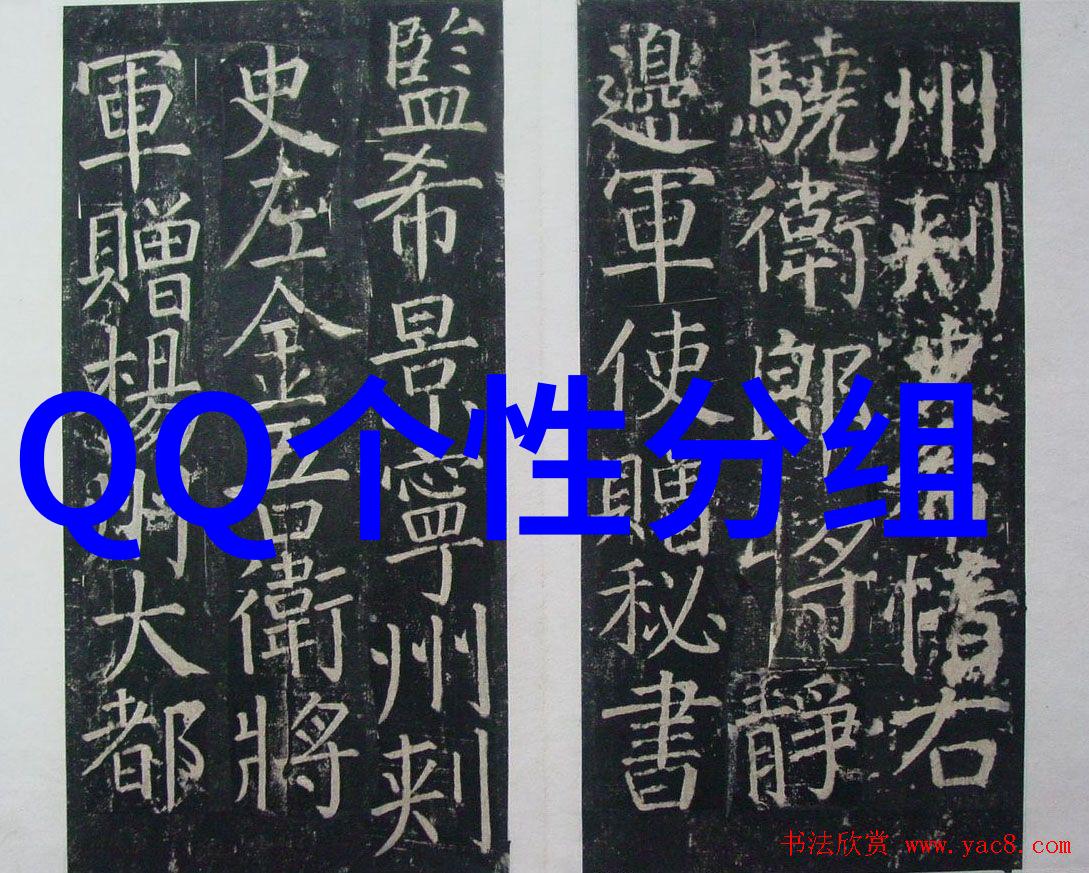 州刺史愔右
驍衛郎將靜
邊軍使贈秘書
監希景寧州刺
史左金吾衛將
軍贈楊州大都
QQ个性分组
书法欣赏 www.yac8.com